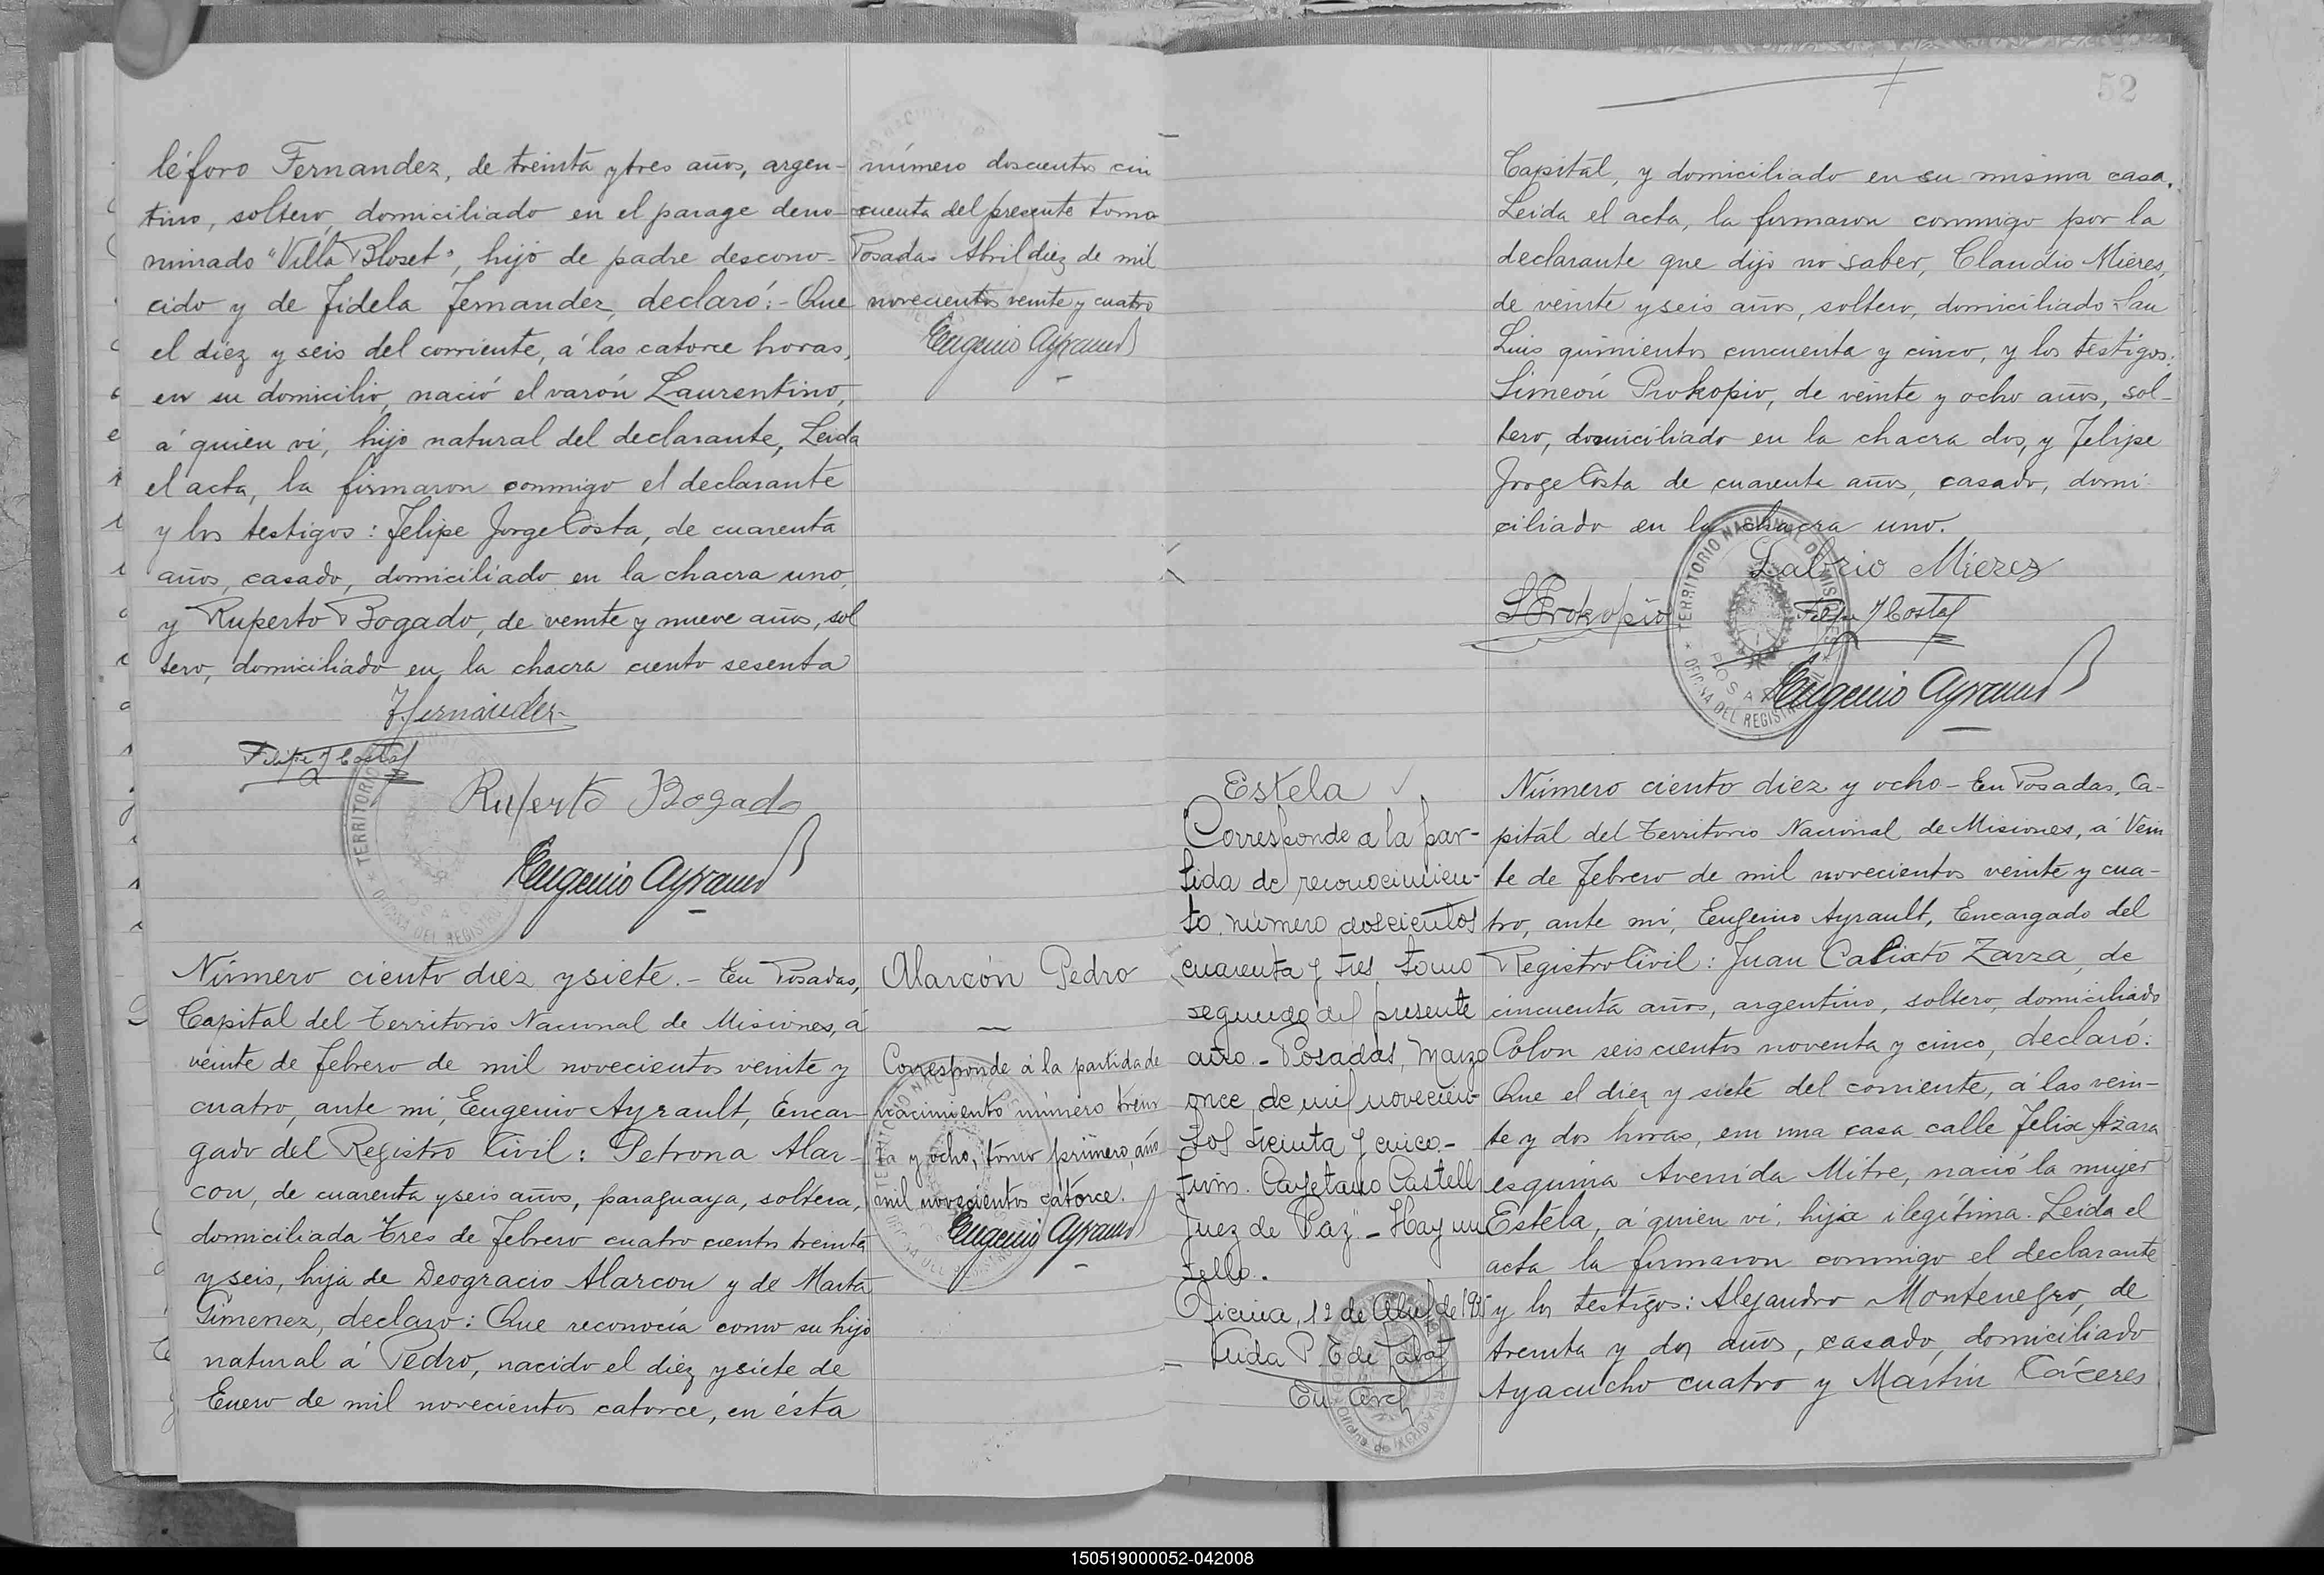 léforo Fernandez, de treinta y tres años, argen-
tino, soltero, domiciliado en el parage deno-
minado "Villa Bloset", hijo de padre descono-
cido y de Fidela Fernandez, declaró:- Que
el diez y seis del corriente, á las catorce horas,
en su domicilio, nació el varón Laurentino,
á quien vi, hijo natural del declarante, Leida
el acta, la firmaron conmigo el declarante
y los testigos: Felipe Jorge Costa, de cuarenta
años, casado, domiciliado en la chacra uno,
y Ruperto Bogado, de veinte y nueve años, sol
tero, domiciliado en la chacra ciento sesenta
TFernández
Felipe J Costa
Ruperto Bogado
Eugenio Ayrault
número doscientos cin
cuenta del presente tomo
Posadas Abril diez de mil
novecientos veinte y cuatro
Eugenio Ayrault
Número ciento diez y siete.- En Posadas,
Capital del Territorio Nacional de Misiones, á
veinte de Febrero de mil novecientos veinte y
cuatro, ante mi, Eugenio Ayrault, Encar-
gado del Registro Civil: Petrona Alar-
con, de cuarenta y seis años, paraguaya, soltera,
domiciliada Tres de Febrero cuatro cientos treinta
y seis, hija de Deogracio Alarcon y de Marta
Gimenez, declaro: Que reconocía como su hijo
natural á Pedro, nacido el diez y siete de
Enero de mil novecientos catorce, en ésta
Alarcón Pedro
Corresponde á la partida de
nacimiento número trein
ta y ocho, tomo primero, año
mil novecientos catorce.
Eugenio Ayrault
52
Capital, y domiciliado en su misma casa.
Leida el acta, la firmaron conmigo por la
declarante que dijo no saber, Claudio Mieres,
de veinte y seis años, soltero, domiciliado San
Luis quinientos cincuenta y cinco, y los testigos:
Simeón Prokopio, de veinte y ocho años, sol-
tero, domiciliado en la chacra dos, y Felipe
Jorge Costa de cuarenta años, casado, domi-
ciliado en la chacra uno.
Mierez
S Prokopio
Felipe J Costa
Eugenio Ayrault
TERRITORIO NACIONAL DE MISIONES
POSADAS
OFICINA DEL REGISTRO CIVIL
Estela
Corresponde a la par-
tida de reconocimien-
to número doscientos
cuarenta y tres tomo
segundo del presente
año.- Posadas, Marzo
once de mil novecien-
tos treinta y cinco-
Firm. Cayetano Castell
Juez de Paz"- Hay un
sello.
Oficina, 12 de Abril de 1935
En. Arch
Número ciento diez y ocho- En Posadas, Ca-
pital del Territorio Nacional de Misiones, á Vein
te de Febrero de mil novecientos veinte y cua-
tro, ante mi, Eugenio Ayrault, Encargado del
Registro Civil: Juan Calixto Zarza, de
cincuenta años, argentino, soltero, domiciliado
Colon seis cientos noventa y cinco, declaró:
Que el diez y siete del corriente, á las vein-
te y dos horas, em una casa calle Felix Azara
esquina Avenida Mitre, nació la mujer
Estéla, á quien vi, hija ilegítima. Leida el
acta la firmaron conmigo el declarante
y los testigos: Alejandro Montenegro, de
treinta y dos años, casado, domiciliado
Ayacucho cuatro y Martin Cáceres
150519000052-042008